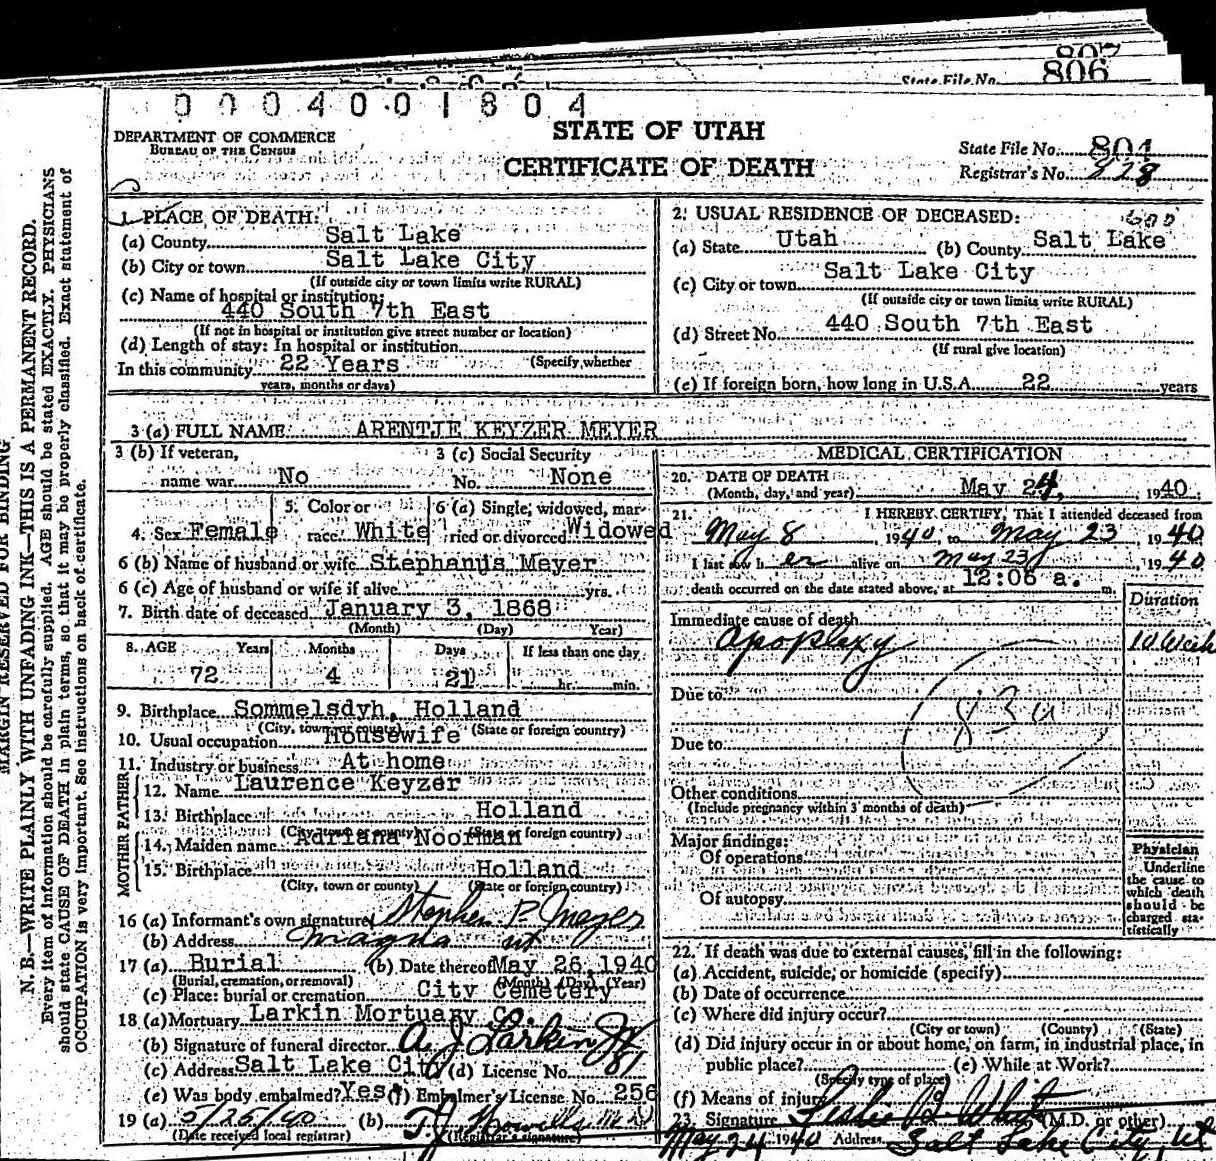 807
State File No. 806
0004001804
DEPARTMENT OF COMMERCE
BUREAU OF THE CENSUS
STATE OF UTAH
CERTIFICATE OF DEATH
State File No. 804
Registrar's No. 828
1. PLACE OF DEATH:
(a) County Salt Lake
(b) City or town Salt Lake City
(If outside city or town limits write RURAL)
(c) Name of hospital or institution:
440 South 7th East
(If not in hospital or institution give street number or location)
(d) Length of stay: In hospital or institution
(Specify whether
In this community 22 Years
years, months or days)
2. USUAL RESIDENCE OF DECEASED:
(a) State Utah (b) County Salt Lake
(c) City or town Salt Lake City
(If outside city or town limits write RURAL)
(d) Street No. 440 South 7th East
(If rural give location)
(e) If foreign born, how long in U.S.A. 22 years
3 (a) FULL NAME ARENTJE KEYZER MEYER
3 (b) If veteran, name war No
3 (c) Social Security No. None
4. Sex Female
5. Color or race White
6 (a) Single, widowed, married or divorced Widowed
6 (b) Name of husband or wife Stephanus Meyer
6 (c) Age of husband or wife if alive yrs.
7. Birth date of deceased January 3, 1868
(Month) (Day) Year)
8. AGE Years Months Days If less than one day
72 4 21 hr. min.
9. Birthplace Sommelsdyh, Holland
(City, town or county) (State or foreign country)
10. Usual occupation Housewife
11. Industry or business At home
FATHER
12. Name Laurence Keyzer
13. Birthplace Holland
(City, town or county) (State or foreign country)
MOTHER
14. Maiden name Adriana Noorman
15. Birthplace Holland
(City, town or county) (State or foreign country)
16 (a) Informant's own signature Stephen P. Meyer
(b) Address Magna Ut
17 (a) Burial (b) Date thereof May 26, 1940
(Burial, cremation, or removal) (Month) (Day) (Year)
(c) Place: burial or cremation City Cemetery
18 (a) Mortuary Larkin Mortuary Co.
(b) Signature of funeral director A J Larkin Jr
(c) Address Salt Lake City (d) License No. 81
(e) Was body embalmed? Yes (f) Embalmer's License No. 256
19 (a) 5/25/40 (b) T. J. Howells M.D.
(Date received local registrar) (Registrar's signature)
MEDICAL CERTIFICATION
20. DATE OF DEATH
(Month, day, and year) May 24, 1940
21. I HEREBY CERTIFY, That I attended deceased from
May 8 1940, to May 23 1940
I last saw h er alive on May 23, 1940
death occurred on the date stated above, at 12:05 a. m.
Duration
Immediate cause of death
apoplexy 10 Week
Due to
83a
Due to
Other conditions
(Include pregnancy within 3 months of death)
Major findings:
Of operations
Of autopsy
Physician
Underline
the cause to
which death
should be
charged sta-
tistically
22. If death was due to external causes, fill in the following:
(a) Accident, suicide, or homicide (specify)
(b) Date of occurrence
(c) Where did injury occur?
(City or town) (County) (State)
(d) Did injury occur in or about home, on farm, in industrial place, in
public place? (e) While at Work?
(Specify type of place)
(f) Means of injury
23. Signature Leslie B. White (M.D. or other)
May 24 1940 Address Salt Lake City, Ut
MARGIN RESERVED FOR BINDING
N. B.—WRITE PLAINLY WITH UNFADING INK—THIS IS A PERMANENT RECORD.
Every item of information should be carefully supplied. AGE should be stated EXACTLY. PHYSICIANS
should state CAUSE OF DEATH in plain terms, so that it may be properly classified. Exact statement of
OCCUPATION is very important. See instructions on back of certificate.